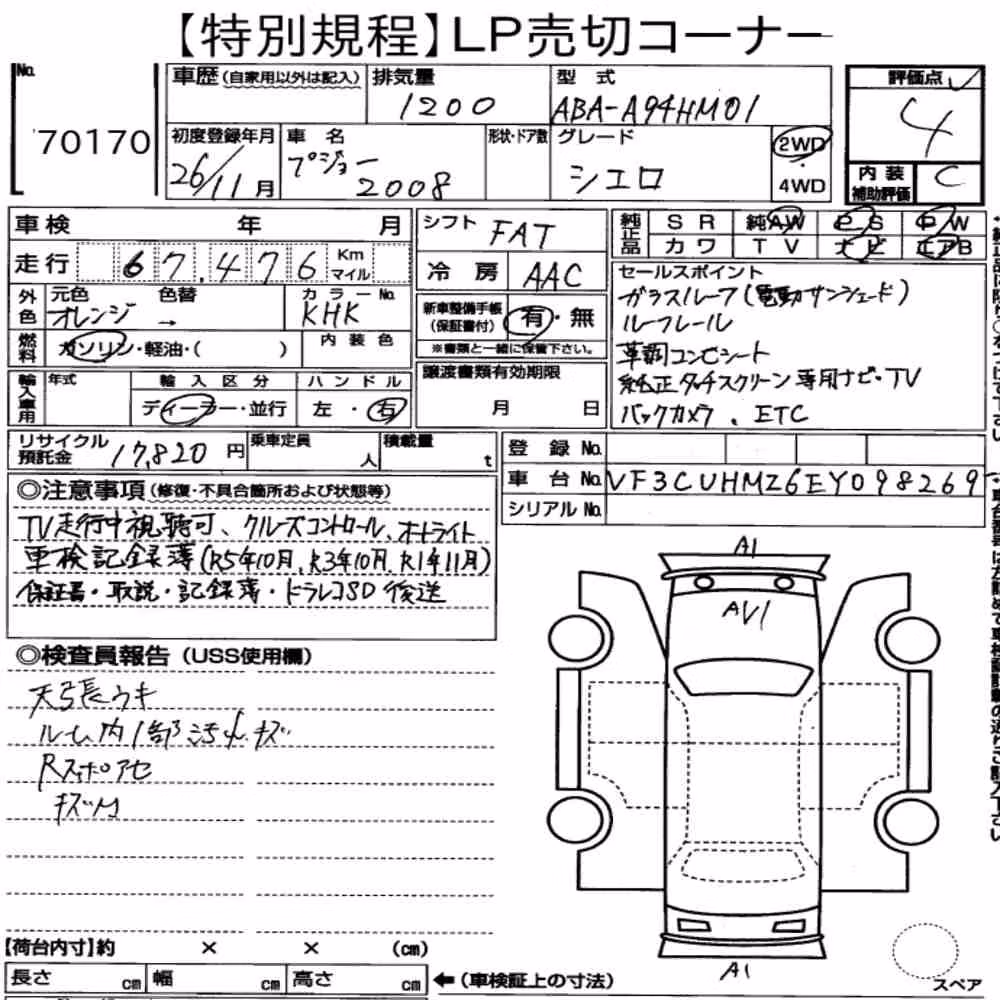 【特別規程】LP売切コーナー
No. 70170
車歴 (自家用以外は記入) 排気量 1200 型式 ABA-A94HM01
初度登録年月 26/11月 車名 プジョー 2008 形状・ドア数 グレード シエロ 2WD・4WD
評価点 4
内装補助評価 C
車検 年 月
走行 67,476 Km マイル
外色 元色 オレンジ 色替 → カラーNo. KHK
燃料 ガソリン・軽油・( ) 内装色
輸入車用 年式 輸入区分 ディーラー・並行 ハンドル 左・右
シフト FAT
冷房 AAC
新車整備手帳(保証書付) 有・無
※書類と一緒に保管下さい。
譲渡書類有効期限
月 日
純正品 SR 純AW PS PW
カワ TV ナビ エアB
セールスポイント
ガラスルーフ(電動サンシェード)
ルーフレール
革調コンビシート
純正タッチスクリーン専用ナビ・TV
バックカメラ、ETC
リサイクル預託金 17,820円 乗車定員 人 積載量 t
登録No.
車台No. VF3CUHMZ6EY098269
シリアルNo.
◎注意事項(修復・不具合箇所および状態等)
TV走行中視聴可、クルーズコントロール、オートライト
車検記録簿(R5年10月、R3年10月、R1年11月)
保証書・取説・記録簿・ドラレコSD後送
◎検査員報告(USS使用欄)
天張ウキ
ルーム内1部汚れ、キズ
Rスポアセ
キズ
A1
AV1
A1
スペア
【荷台内寸】約 × × (cm)
長さ cm 幅 cm 高さ cm ←(車検証上の寸法)